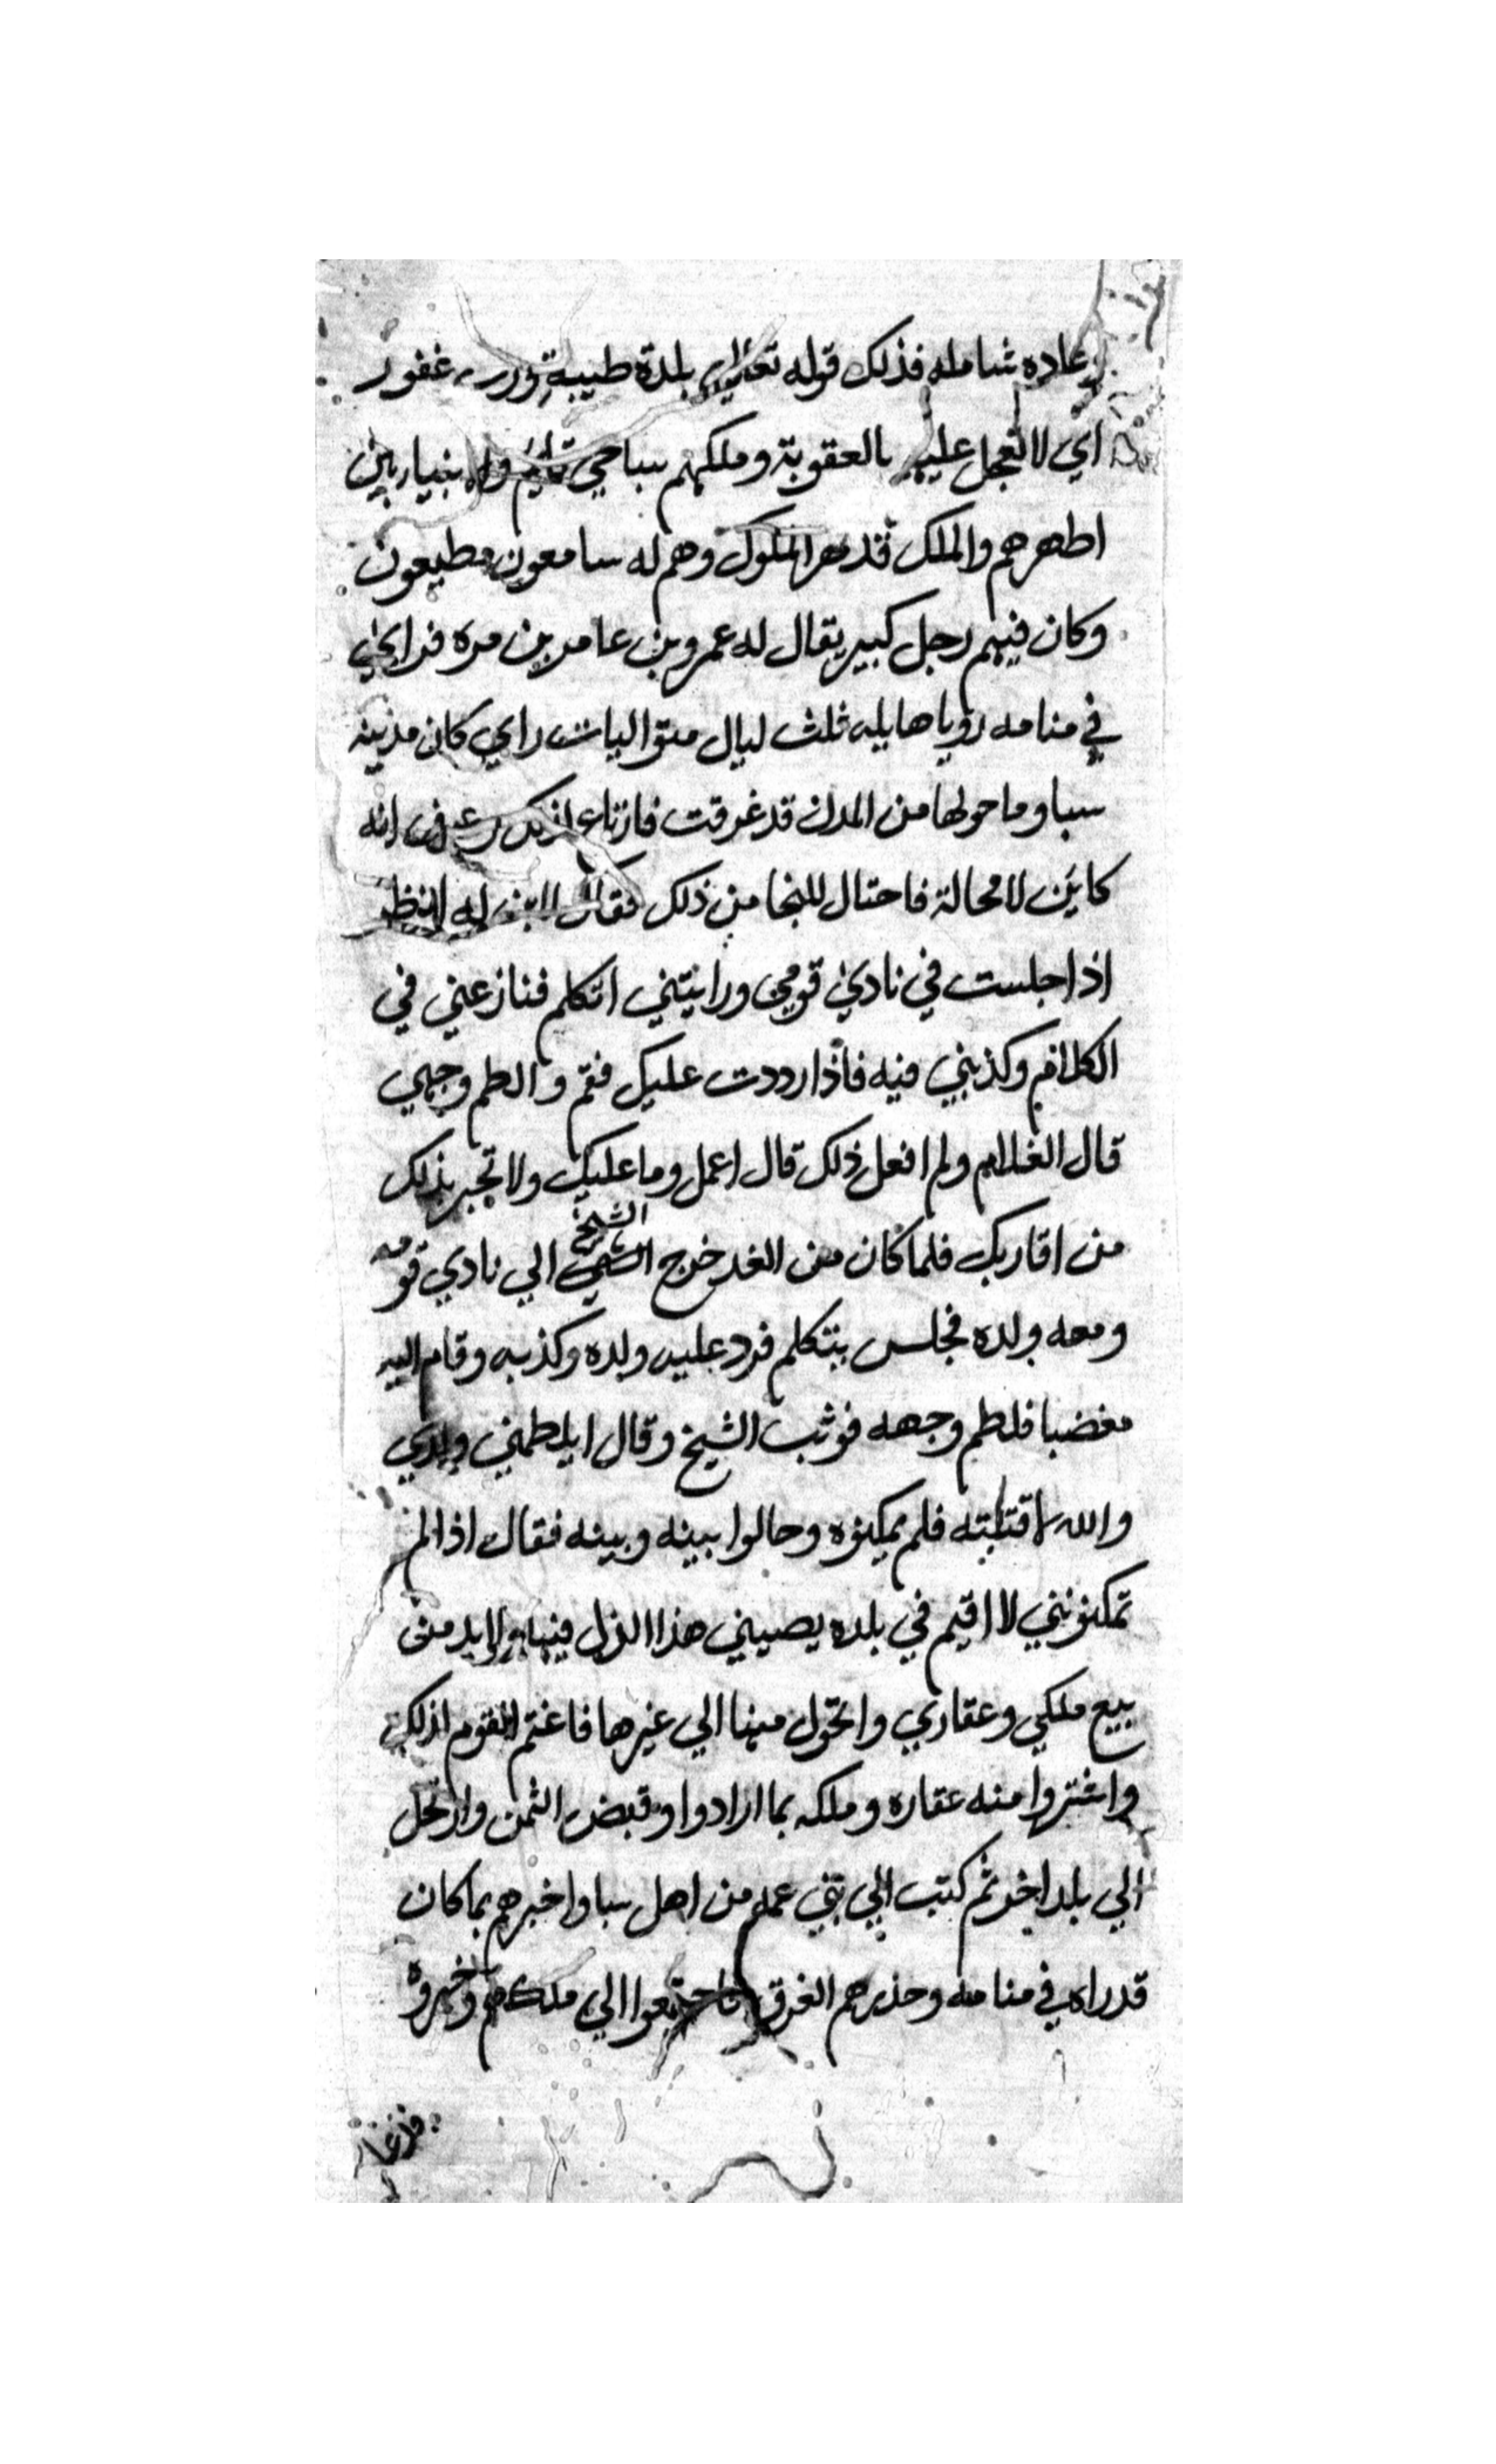 وعاده شامله فذلك قوله تعالي بلدة طيبة ورب غفور
اي لا تعجل عليهم بالعقوبة وملكهم سبا حي قايم وله بين
اطهرهم والملك قد قهر الملوك وهم له سامعون مطيعون
وكان فيهم رجل كبير يقال له عمرو بن عامر بن مره فراي
في منامه رويا هايله ثلث ليال متواليات راي كان مدينه
سبا وما حولها من المدن قد غرقت فارتاع لذلك وعرف انه
كاين لا محالة فاحتال للنجا من ذلك فقال لابن له انظر
اذا جلست في نادي قومي ورايتني اتكلم فنازعني في
الكلام وكذبني فيه فاذا رددت عليك فقم والطم وجهي
قال الغلام ولم افعل ذلك قال اعمل وما عليك ولا تخبر بذلك
من اقاربك فلما كان من الغد خرج الشيخ الي نادي قومه
ومعه ولده فجلس يتكلم فرد عليه ولده وكذبه وقام اليه
مغضبا فلطم وجهه فوثب الشيخ وقال ايلطمني ولدي
والله لاقتلنه فلم يمكنوه وحالوا بينه وبينه فقال اذا لم
تمكنونني لا اقيم في بلده يصيبني هذا الذل فيها ولا بد من
بيع ملكي وعقاري واتحول منها الي غيرها فاغتم القوم لذلك
واشتروا منه عقاره وملكه بما ارادوا وقبض الثمن وارتحل
الي بلد اخر ثم كتب الي بني عمه من اهل سبا واخبرهم بما كان
قد راه في منامه وحذرهم الغرق فاجتمعوا الي ملكهم وخبروه